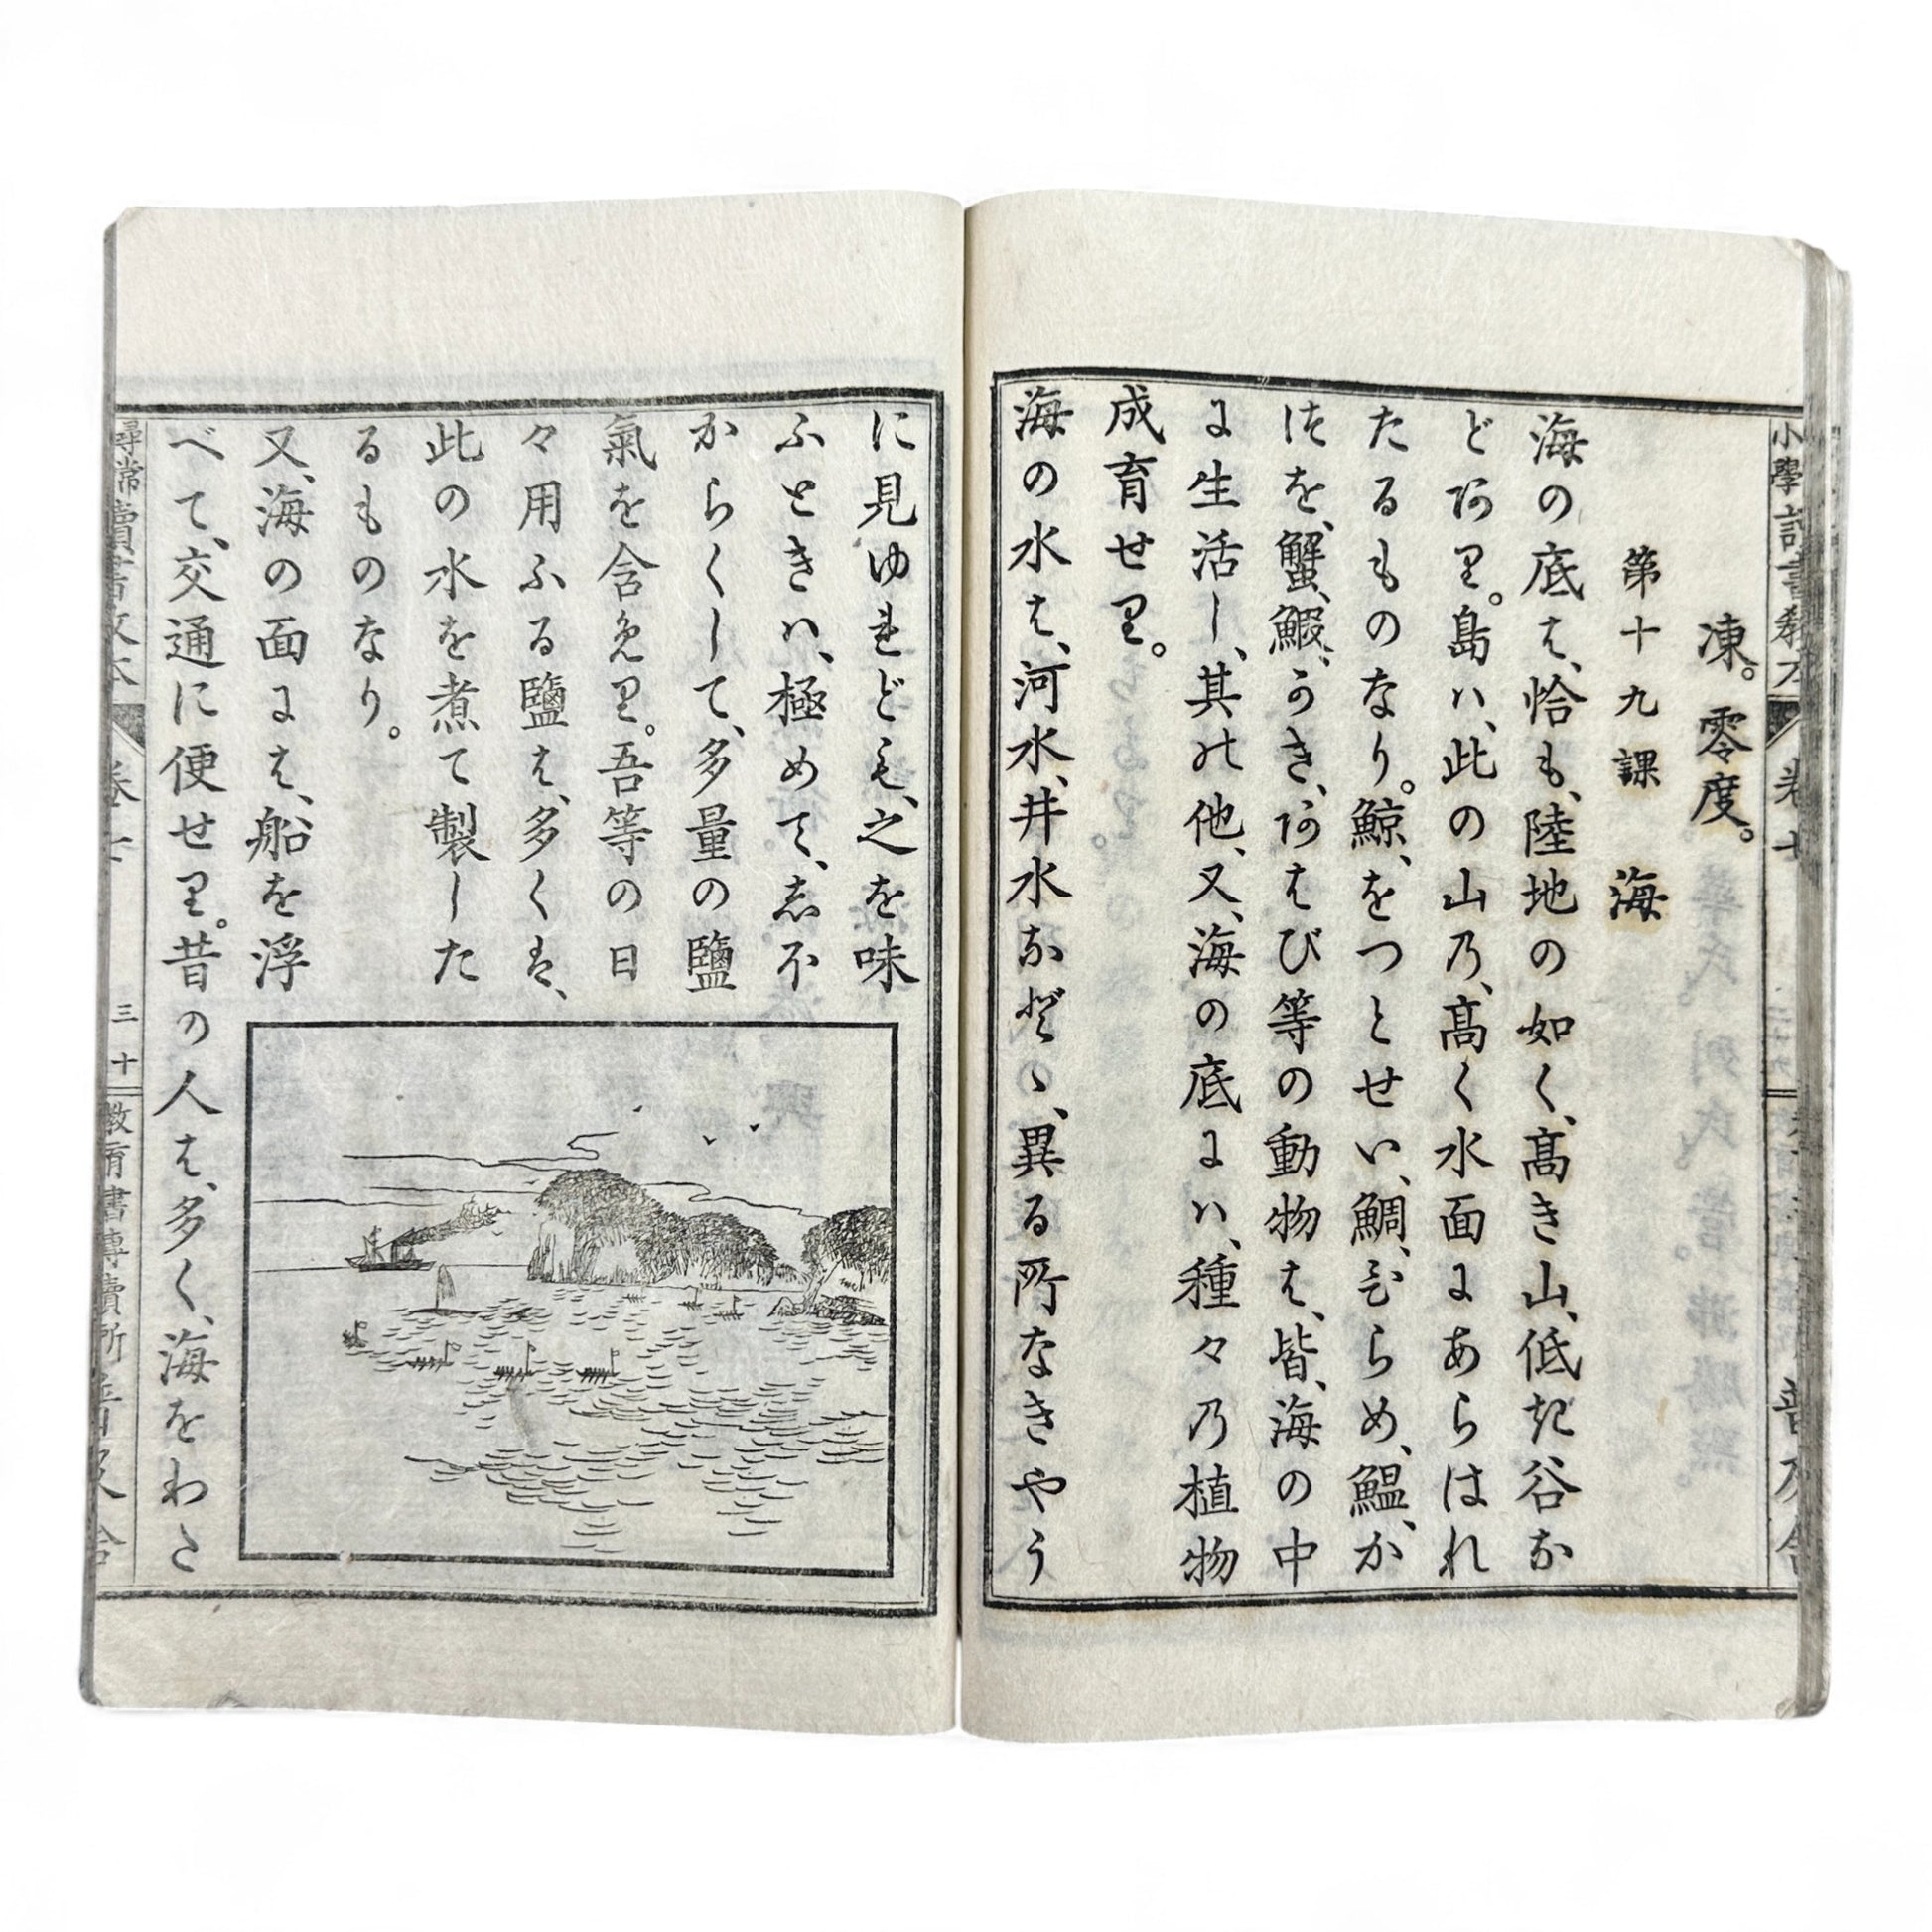 凍。零度。
第十九課　海
海の底は、恰も、陸地の如く、高き山、低き谷な
どあり。島ハ、此の山の、高く水面にあらはれ
たるものなり。鯨、をつとせい、鯛、ひらめ、鰮、か
つを、蟹、鰕、うき、あはび等の動物は、皆、海の中
に生活し、其の他、又、海の底にハ、種々の植物
成育せり。
海の水は、河水、井水など〻、異る所なきやう
に見ゆれども、之を味
ふときハ、極めて、志不
からくして、多量の鹽
氣を含めり。吾等の日
々用ふる鹽は、多くは、
此の水を煮て製した
るものなり。
又、海の面には、船を浮
べて、交通に便せり。昔の人は、多く、海をわた
尋常讀書教本　卷七　三十　教育書專賣所　普及舍